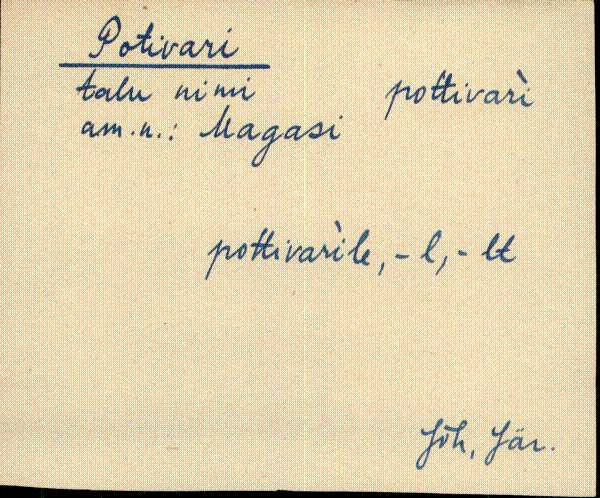 Potivari
talu nimi pottivarì
am.n.: Magasi
pottivarìle, -l, -lt
Jõh, Jär.